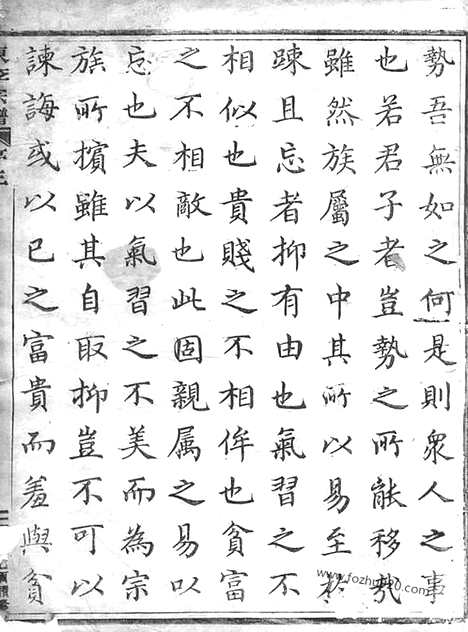 勢吾無如之何是則衆人之事
也若君子者豈勢之所能移哉
雖然族屬之中其所以易至於
踈且忘者抑有由也氣習之不
相似也貴賤之不相侔也貧富
之不相敵也此固親属之易以
忘也夫以氣習之不美而為宗
族所擯雖其自取抑豈不可以
諫誨或以已之富貴而羞與貧
宗譜
www.fozhu920.com